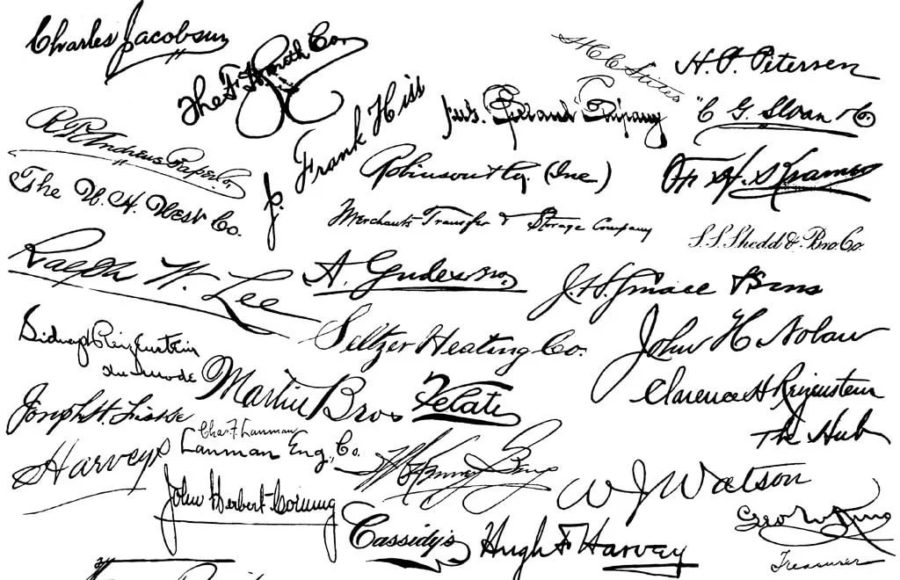 Charles Jacobsen
The F. H. Smith Co
S H C Stites
H. P. Petersen
J. Frank Hiss
Company
C G. Sloan & Co
R. P. Andrews Paper Co
Robinson & Co. (Inc.)
The W. H. West Co.
Merchants Transfer & Storage Company
S. S. Shedd & Bro. Co.
Ralph W. Lee
A. Gude
J. H. Small & Sons
Seltzer Heating Co.
John H Nolan
Sidney Reizenstein
Martin Bros
Clarence H Reizenstein
Joseph H.
Chas F. Lanman
Lanman Eng., Co.
The Hub
Harveys
Bros
W J Watson
John Herbert Corning
Cassidy's
Hugh F Harvey
Geo W King
Treasurer